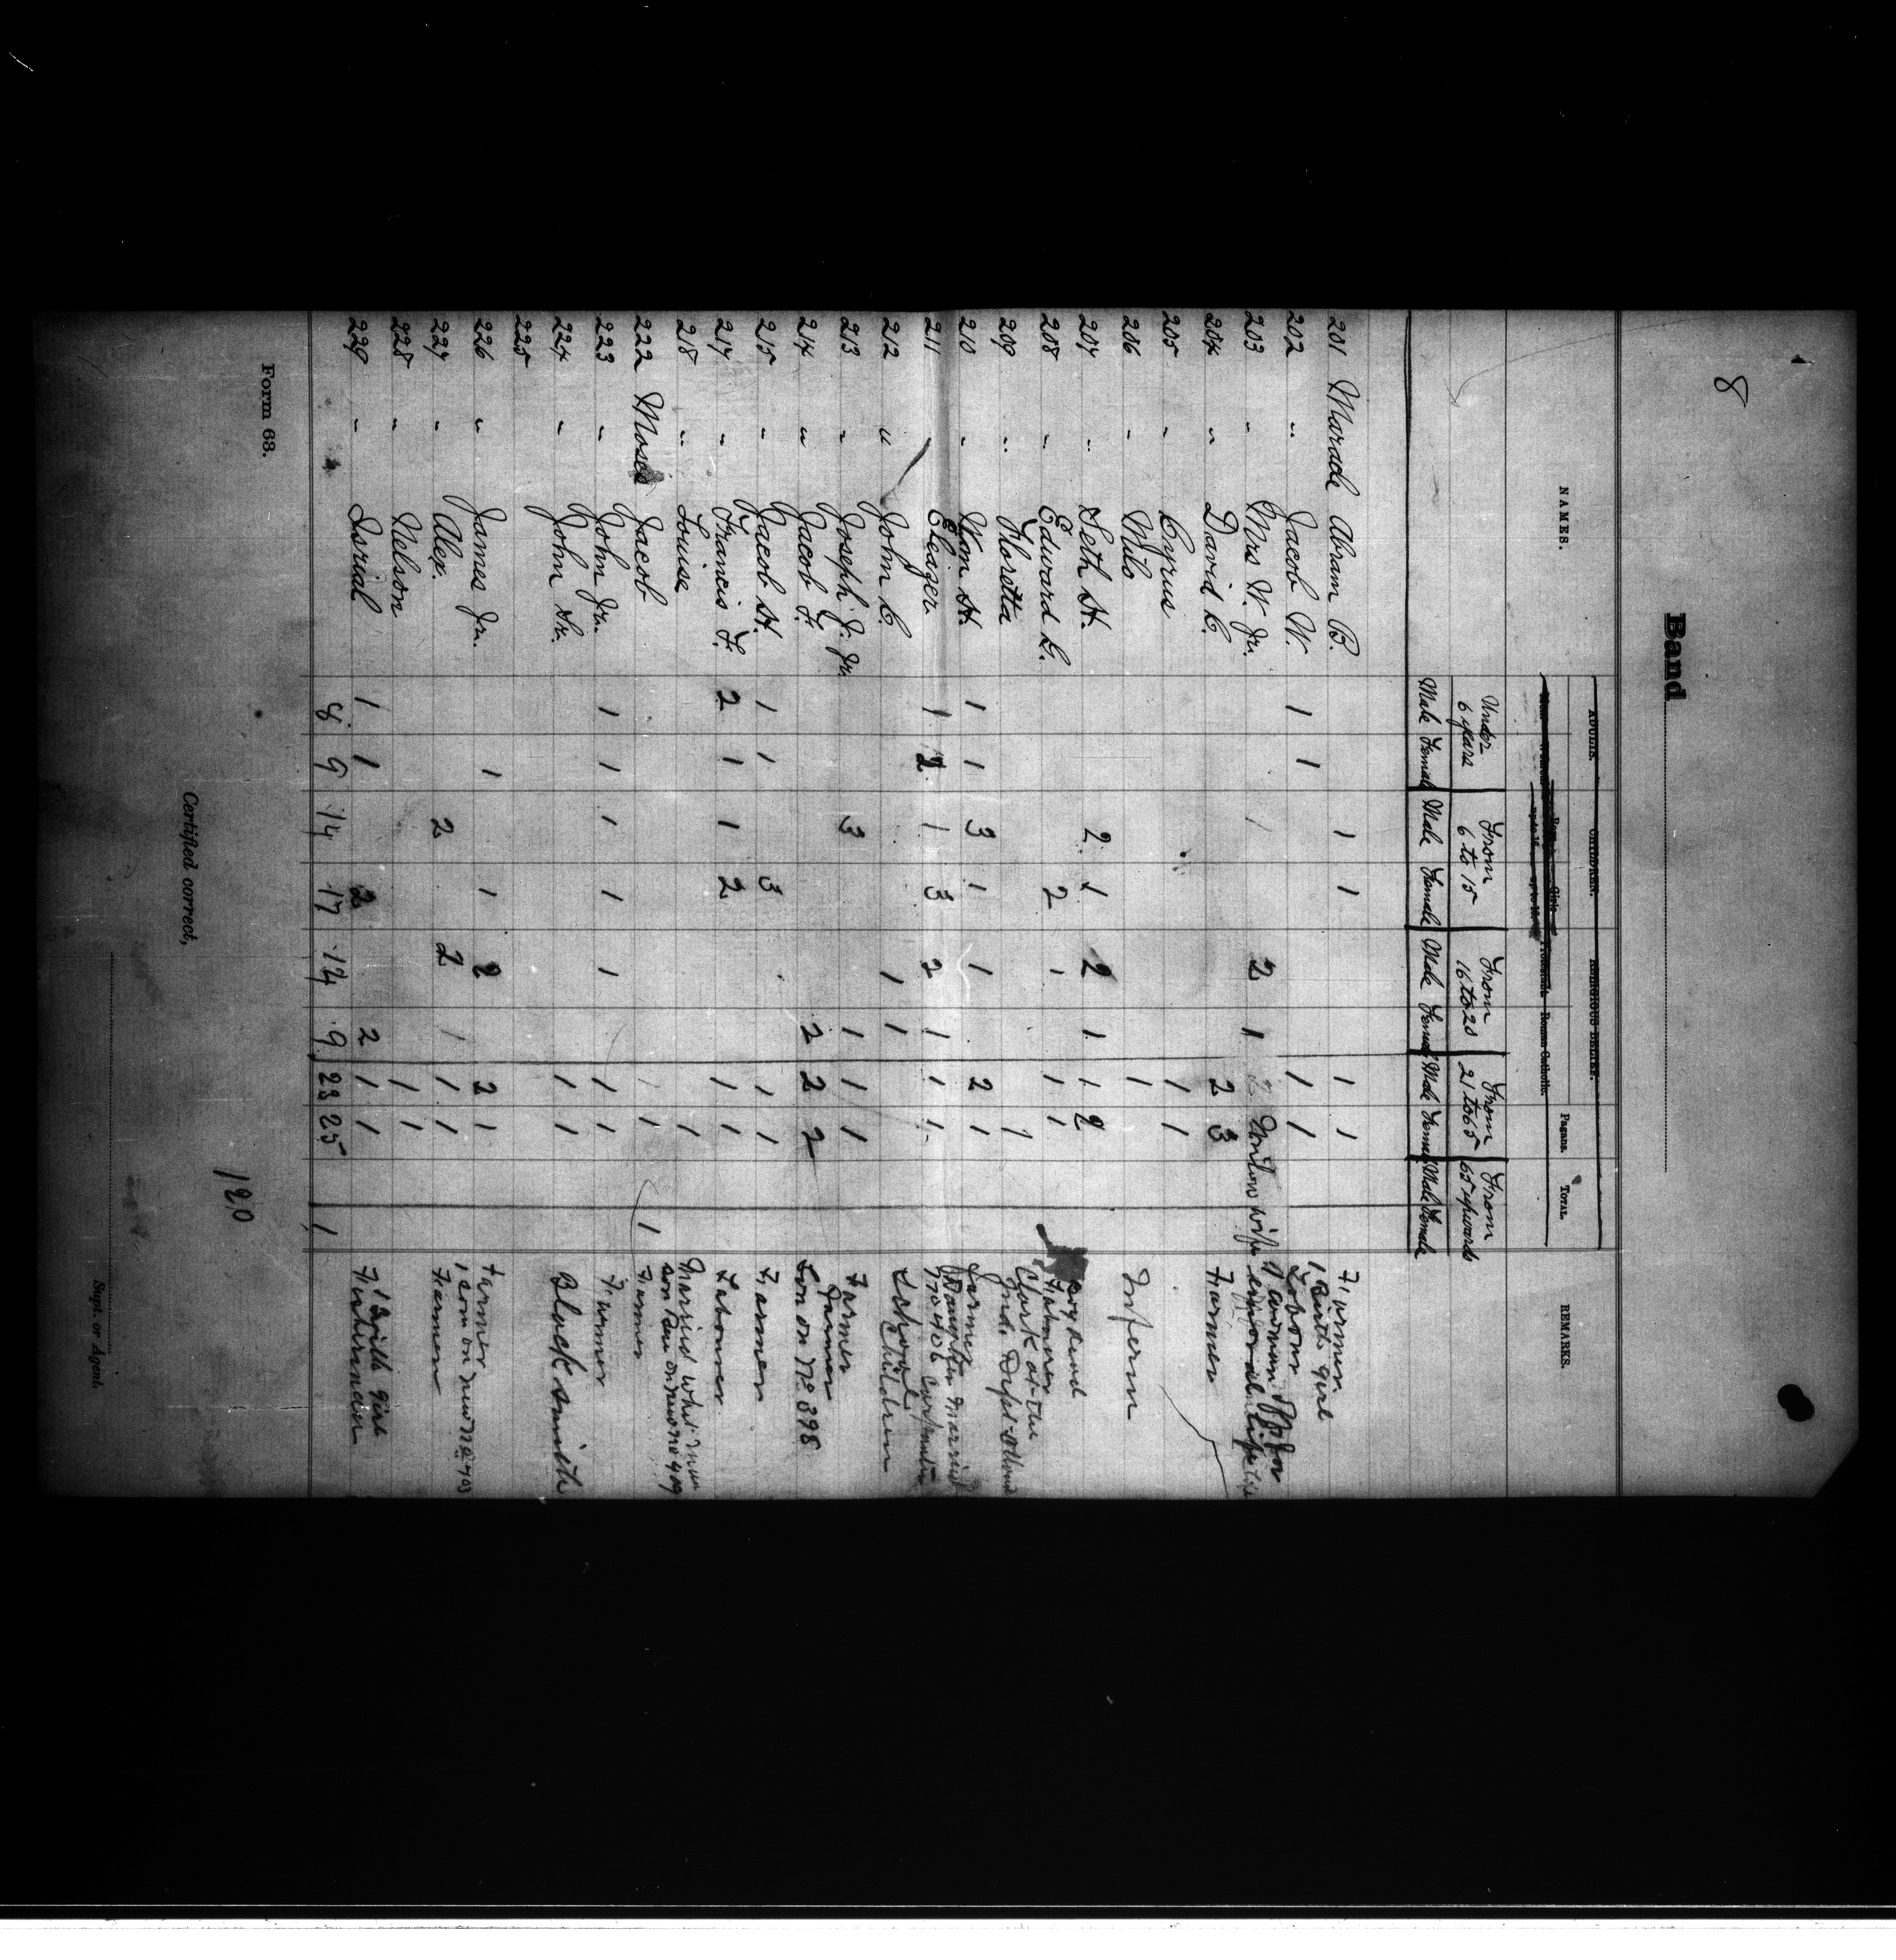 8
Band
NAMES. ADULTS. CHILDREN. RELIGIOUS BELIEF. TOTAL. REMARKS.
Roman Catholic. Pagans.
Under 6 years From 6 to 15 From 16 to 20 From 21 to 65 From 65 upwards
Male Female Male Female Male Female Male Female Male Female
201 Maracle Abram B. 1 1 1 1 Farmer 1 Birth girl
202 " Jacob W. 1 1 1 1 Labour
203 " Mrs W. Jr. 2 1
204 " David C. 2 3 Farmer
205 " Cyrus 1 1
206 " Milo 1 Infirm
207 " Seth H. 2 1 2 1 1 2
208 " Edward G. 2 1 1 1
209 " Floretta 1 Clerk at the Ind. Dept
210 " Wm H. 1 1 3 1 1 2 1 Farmer
211 " Eleazer 1 2 1 3 2 1 1 1
212 " John C. 1 1 School Children
213 " Joseph J. Jr. 3 1 1 1 Farmer
214 " Jacob F. 2 2 2 Farmer Son on No 398
215 " Jacob H. 1 1 3 1 1 Farmer
217 " Francis F. 2 1 1 2 1 1 Labourer
218 " Louise 1 Married white man
222 Moses Jacob 1 1 Farmer
223 " John Jr. 1 1 1 1 1 1 Farmer
224 " John Sr. 1 1 Black smith
225
226 " James Jr. 1 1 2 2 1 Farmer
227 " Alex. 2 2 1 1 1 Farmer
228 " Nelson 1 1
229 " Isrial 1 1 2 2 1 1 Fisherman
8 9 14 17 14 9 23 25 1
120
Certified correct,
Supt. or Agent.
Form 63.